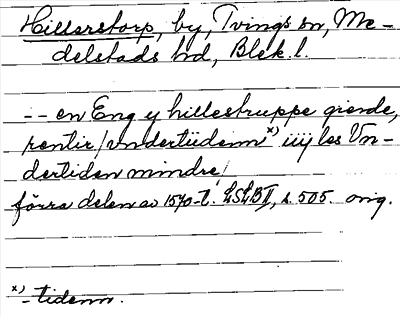 Hillerstorp, by, Tvings sn, Me-
delstads hd, Blek. l.
-- en Eng y hillestruppe gierde,
rentir / vndertiidenn x) iiij les Vn-
dertiden mindre /
förra delen av 1570-t. LSLB II, s. 505. orig.
x) -tidenn.